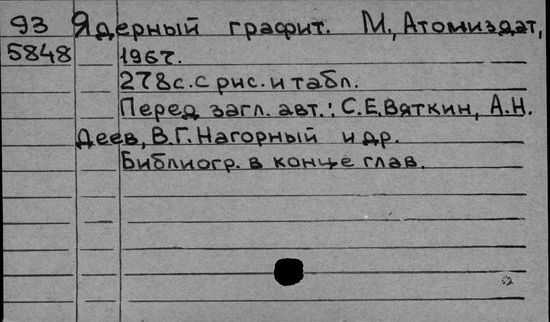 93 Ядерный графит. М., Атомиздат,
5848 1967.
278с. с рис. и табл.
Перед загл. авт.: С.Е.Вяткин, А.Н.
Деев, В.Г.Нагорный и др.
Библиогр. в конце глав.